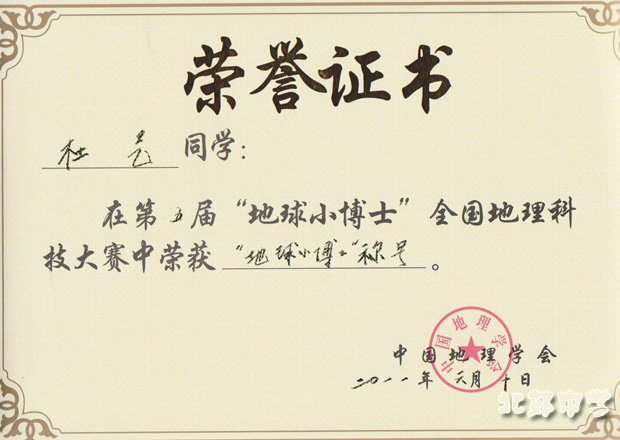 荣誉证书
杜 艺 同学：
在第五届“地球小博士”全国地理科
技大赛中荣获 “地球小博士”称号 。
中国地理学会
中国地理学会
二〇一一年 六月 十日